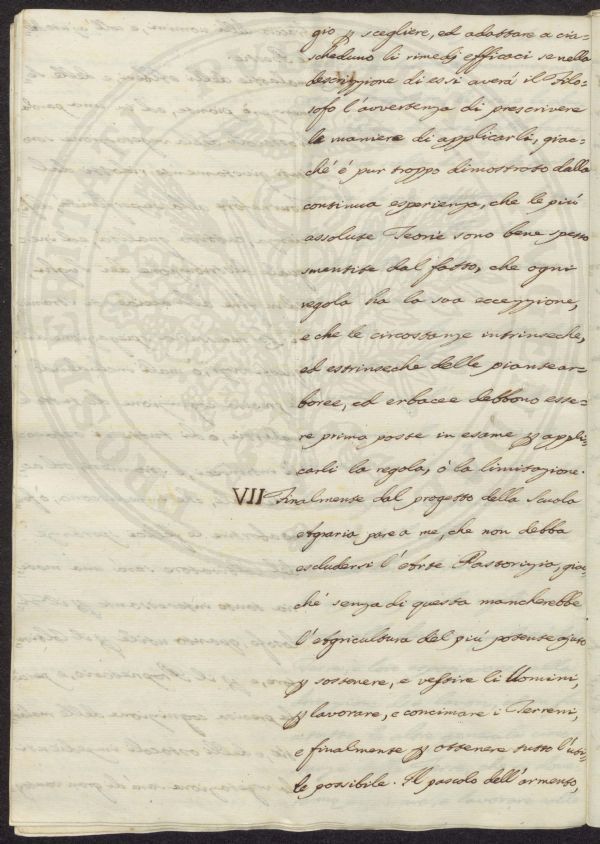 gio p scegliere, ed adattare a cia=
scheduno li rimedj efficaci se nella
descrizzione di essi averá il Filo=
sofo l'avvertenza di prescrivere
le maniere di applicarli, giac=
ché é pur troppo dimostrato dalla
continua esperienza, che le piú
assolute Teorie sono bene spesso
smentite dal fatto, che ogni
regola ha la sua eccezzione,
e che le circostanze intrinseche,
ed estrinseche delle piante ar=
boree, ed erbacee debbono esse=
re prima poste in esame p appli=
carli la regola, ó la limitazione.
VII Finalmente dal progetto della Scuola
Agraria pare a me, che non debba
escludersi l'Arte Pastorizia, giac=
ché senza di questa mancherebbe
l'Agricultura del piú potente ajuto
p sostenere, e vestire li Uomini,
p lavorare, e concimare i Terreni,
e finalmente p ottenere tutto l'uti=
le possibile. Il pascolo dell'armento,